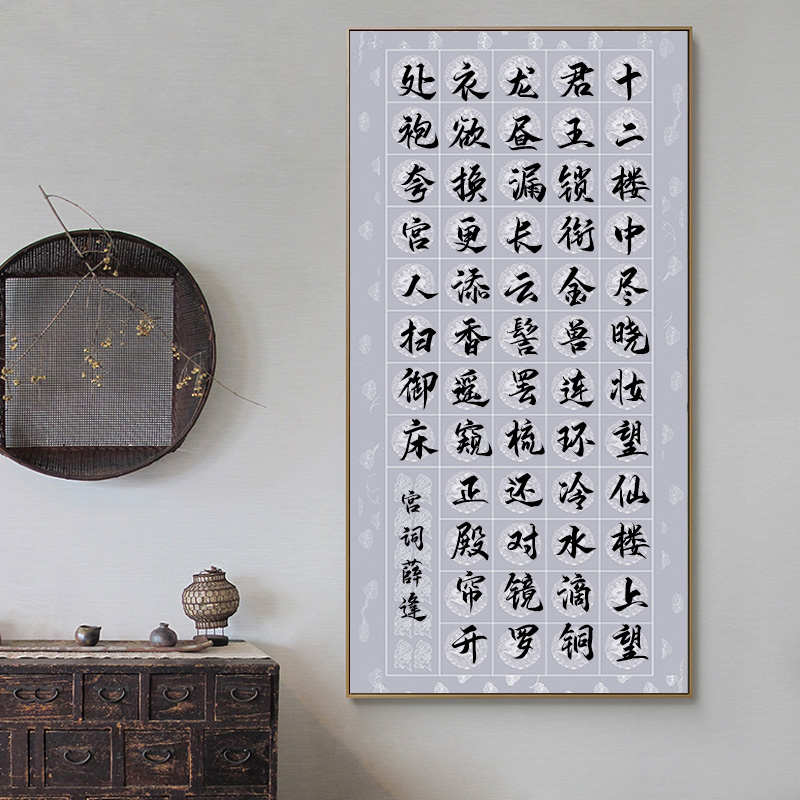 十二楼中尽晓妆望仙楼上望
君王锁衔金兽连环冷水滴铜
龙昼漏长云髻罢梳还对镜罗
衣欲换更添香遥窥正殿帘开
处袍夸宫人扫御床
宫词薛逢